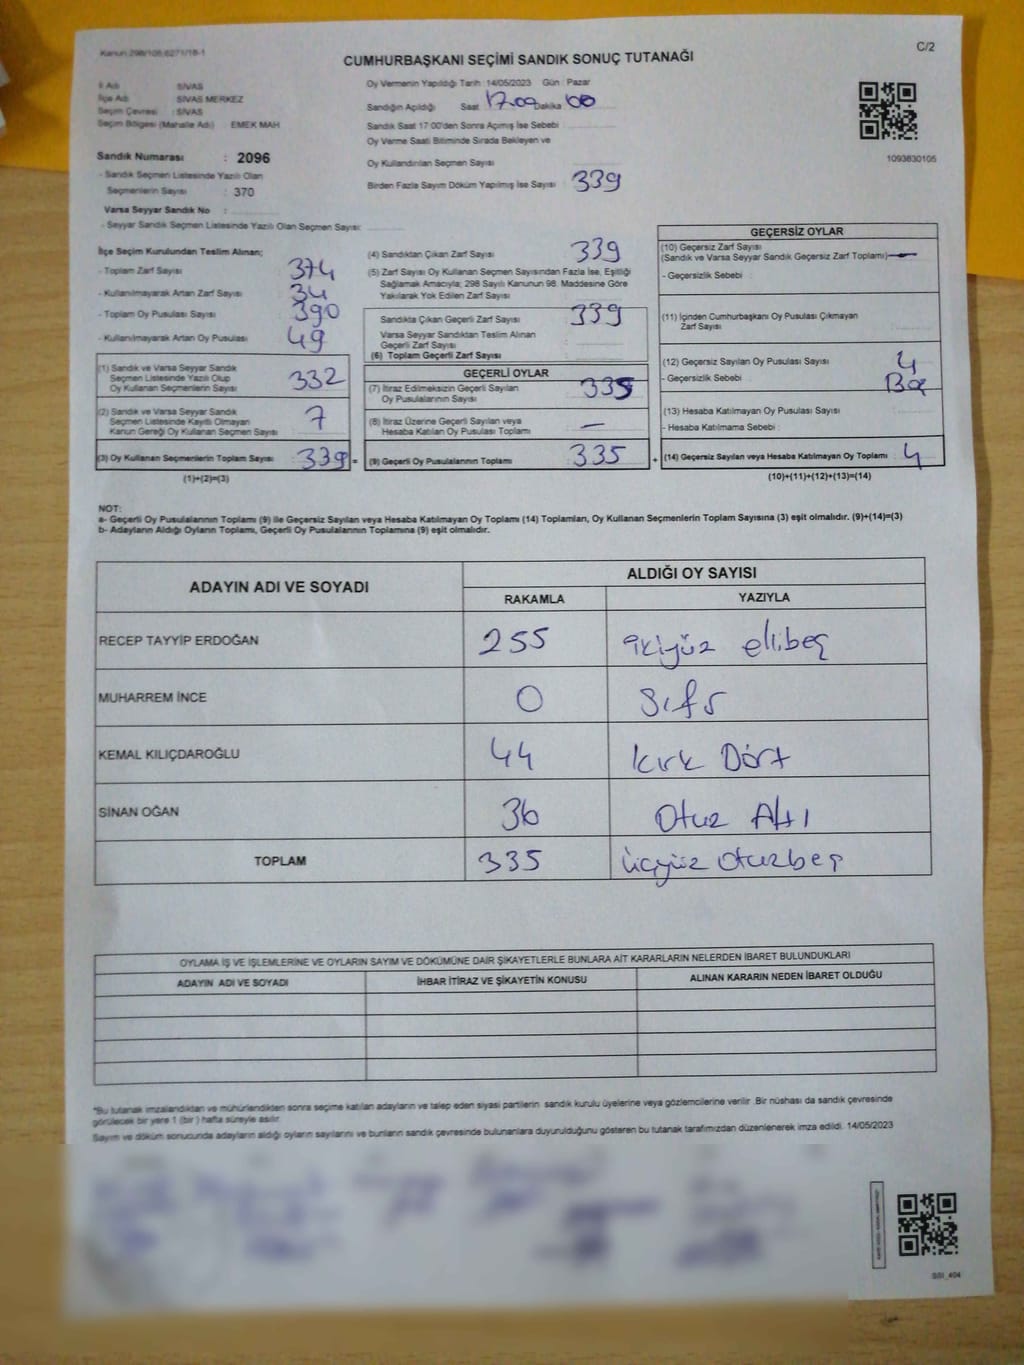 Kanun 298/105.6271/18-1
C/2
CUMHURBAŞKANI SEÇİMİ SANDIK SONUÇ TUTANAĞI
İl Adı : SİVAS
İlçe Adı : SİVAS MERKEZ
Seçim Çevresi : SİVAS
Seçim Bölgesi (Mahalle Adı) : EMEK MAH
Sandık Numarası : 2096
- Sandık Seçmen Listesinde Yazılı Olan
Seçmenlerin Sayısı : 370
Varsa Seyyar Sandık No :
- Seyyar Sandık Seçmen Listesinde Yazılı Olan Seçmen Sayısı:
Oy Vermenin Yapıldığı Tarih :14/05/2023 Gün : Pazar
Sandığın Açıldığı Saat 17.00 Dakika 00
Sandık Saat 17:00'den Sonra Açılmış İse Sebebi :
Oy Verme Saati Bitiminde Sırada Bekleyen ve
Oy Kullandırılan Seçmen Sayısı
Birden Fazla Sayım Döküm Yapılmış İse Sayısı 339
1093830105
İlçe Seçim Kurulundan Teslim Alınan;
- Toplam Zarf Sayısı 374
- Kullanılmayarak Artan Zarf Sayısı 34
- Toplam Oy Pusulası Sayısı 390
- Kullanılmayarak Artan Oy Pusulası 49
(1) Sandık ve Varsa Seyyar Sandık
Seçmen Listesinde Yazılı Olup
Oy Kullanan Seçmenlerin Sayısı 332
(2) Sandık ve Varsa Seyyar Sandık
Seçmen Listesinde Kayıtlı Olmayan
Kanun Gereği Oy Kullanan Seçmen Sayısı 7
(3) Oy Kullanan Seçmenlerin Toplam Sayısı 339 =
(1)+(2)=(3)
(4) Sandıktan Çıkan Zarf Sayısı 339
(5) Zarf Sayısı Oy Kullanan Seçmen Sayısından Fazla İse, Eşitliği
Sağlamak Amacıyla; 298 Sayılı Kanunun 98. Maddesine Göre
Yakılarak Yok Edilen Zarf Sayısı
Sandıkta Çıkan Geçerli Zarf Sayısı 339
Varsa Seyyar Sandıktan Teslim Alınan
Geçerli Zarf Sayısı
(6) Toplam Geçerli Zarf Sayısı
GEÇERLİ OYLAR
(7) İtiraz Edilmeksizin Geçerli Sayılan
Oy Pusulalarının Sayısı 335
(8) İtiraz Üzerine Geçerli Sayılan veya
Hesaba Katılan Oy Pusulası Toplamı —
(9) Geçerli Oy Pusulalarının Toplamı 335 +
GEÇERSİZ OYLAR
(10) Geçersiz Zarf Sayısı
(Sandık ve Varsa Seyyar Sandık Geçersiz Zarf Toplamı) —
- Geçersizlik Sebebi :
(11) İçinden Cumhurbaşkanı Oy Pusulası Çıkmayan
Zarf Sayısı
(12) Geçersiz Sayılan Oy Pusulası Sayısı 4
- Geçersizlik Sebebi :
(13) Hesaba Katılmayan Oy Pusulası Sayısı
- Hesaba Katılmama Sebebi :
(14) Geçersiz Sayılan veya Hesaba Katılmayan Oy Toplamı 4
(10)+(11)+(12)+(13)=(14)
NOT:
a- Geçerli Oy Pusulalarının Toplamı (9) ile Geçersiz Sayılan veya Hesaba Katılmayan Oy Toplamı (14) Toplamları, Oy Kullanan Seçmenlerin Toplam Sayısına (3) eşit olmalıdır. (9)+(14)=(3)
b- Adayların Aldığı Oyların Toplamı, Geçerli Oy Pusulalarının Toplamına (9) eşit olmalıdır.
ADAYIN ADI VE SOYADI ALDIĞI OY SAYISI
RAKAMLA YAZIYLA
RECEP TAYYİP ERDOĞAN 255 ikiyüz ellibeş
MUHARREM İNCE 0 Sıfır
KEMAL KILIÇDAROĞLU 44 kırk Dört
SİNAN OĞAN 36 Otuz Altı
TOPLAM 335 üçyüz otuzbeş
OYLAMA İŞ VE İŞLEMLERİNE VE OYLARIN SAYIM VE DÖKÜMÜNE DAİR ŞİKAYETLERLE BUNLARA AİT KARARLARIN NELERDEN İBARET BULUNDUKLARI
ADAYIN ADI VE SOYADI İHBAR İTİRAZ VE ŞİKAYETİN KONUSU ALINAN KARARIN NEDEN İBARET OLDUĞU
*Bu tutanak imzalandıktan ve mühürlendikten sonra seçime katılan adayların ve talep eden siyasi partilerin sandık kurulu üyelerine veya gözlemcilerine verilir. Bir nüshası da sandık çevresinde
görülecek bir yere 1 (bir) hafta süreyle asılır.
Sayım ve döküm sonucunda adayların aldığı oyların sayılarını ve bunların sandık çevresinde bulunanlara duyurulduğunu gösteren bu tutanak tarafımızdan düzenlenerek imza edildi. 14/05/2023